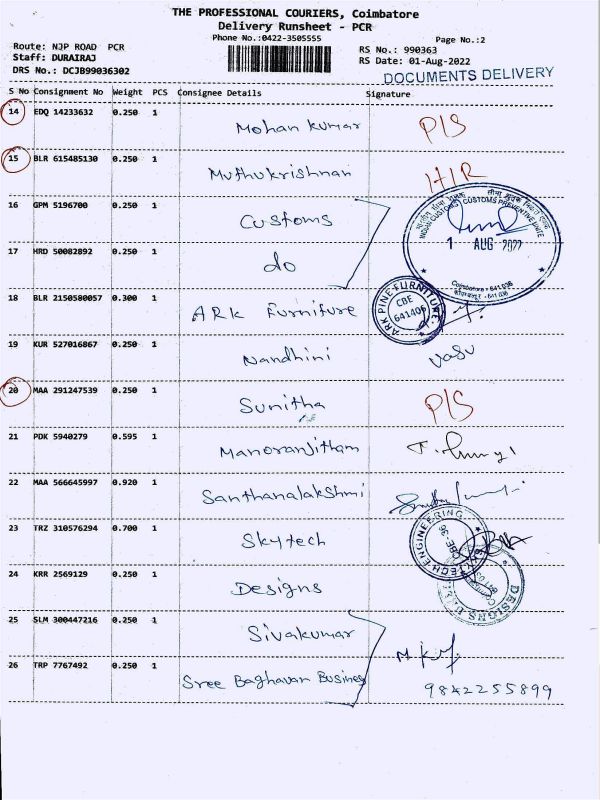 THE PROFESSIONAL COURIERS, Coimbatore
Delivery Runsheet - PCR
Phone No.:0422-3505555
Page No.:2
Route: NJP ROAD PCR
RS No.: 990363
Staff: DURAIRAJ
RS Date: 01-Aug-2022
DRS No.: DCJB99036302
DOCUMENTS DELIVERY
S No Consignment No Weight PCS Consignee Details Signature
14 EDQ 14233632 0.250 1 Mohan kumar P/S
15 BLR 615485130 0.250 1 Muthukrishnan
16 GPM 5196700 0.250 1 Customs
INDIAN CUSTOMS CUSTOMS PREVENTIVE UNIT
1 AUG 2022
Coimbatore - 641 036
17 HRD 50082892 0.250 1 do
18 BLR 2150580057 0.300 1 ARK Furniture
ARK PINE FURNITURE
CBE
641406
19 KUR 527016867 0.250 1 Nandhini Vasu
20 MAA 291247539 0.250 1 Sunitha P/S
21 PDK 5940279 0.595 1 Manoranjitham
22 MAA 566645997 0.920 1 Santhanalakshmi
23 TRZ 310576294 0.700 1 Skytech
SKYTECH ENGINEERING
CBE 36
24 KRR 2569129 0.250 1 Designs
DESIGNS
25 SLM 300447216 0.250 1 Sivakumar
26 TRP 7767492 0.250 1 Sree Baghavan Busines
9842255899